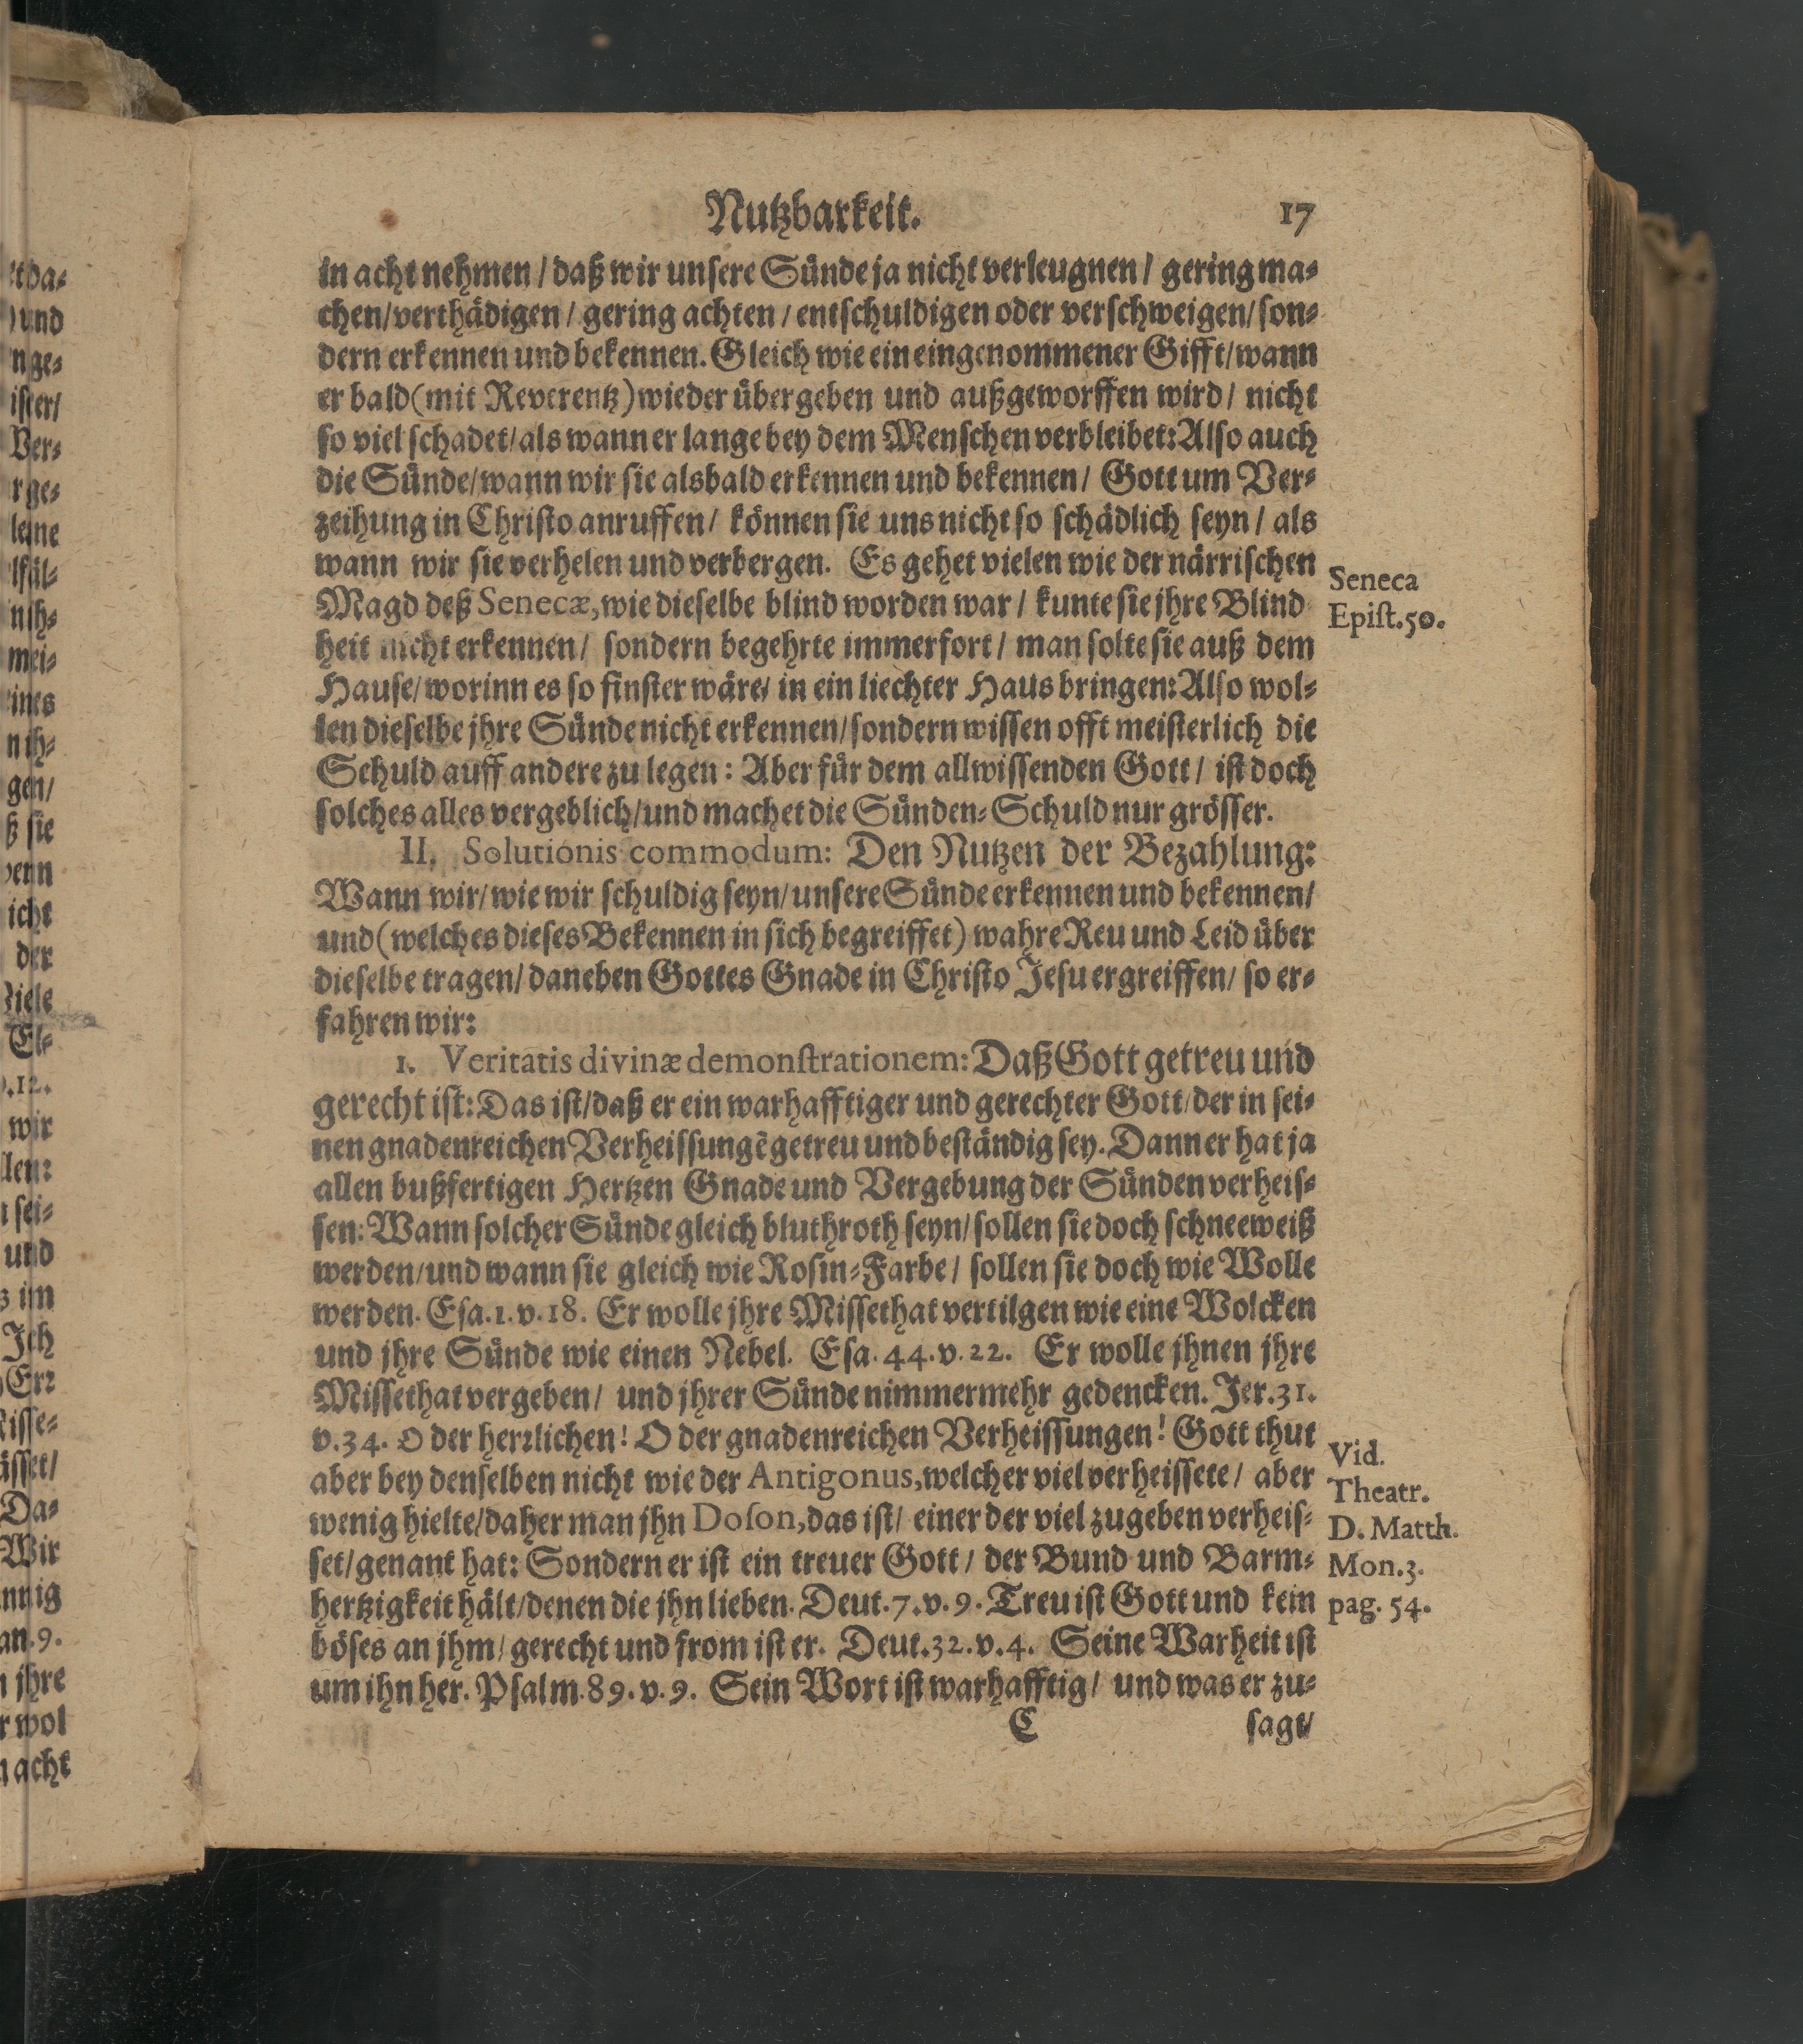 Nutzbarkeit. 17
in acht nehmen / daß wir unsere Sünde ja nicht verleugnen / gering ma-
chen / verthädigen / gering achten / entschuldigen oder verschweigen / son-
dern erkennen und bekennen. Gleich wie ein eingenommener Gifft / wann
er bald (mit Reverentz) wieder übergeben und außgeworffen wird / nicht
so viel schadet / als wann er lange bey dem Menschen verbleibet: Also auch
die Sünde / wann wir sie alsbald erkennen und bekennen / Gott um Ver-
zeihung in Christo anruffen / können sie uns nicht so schädlich seyn / als
wann wir sie verhelen und verbergen. Es gehet vielen wie der närrischen
Seneca
Magd deß Senecæ, wie dieselbe blind worden war / kunte sie jhre Blind
Epist. 50.
heit nicht erkennen / sondern begehrte immerfort / man solte sie auß dem
Hause / worinn es so finster wäre / in ein liechter Haus bringen: Also wol-
len dieselbe jhre Sünde nicht erkennen / sondern wissen offt meisterlich die
Schuld auff andere zu legen: Aber für dem allwissenden Gott / ist doch
solches alles vergeblich / und machet die Sünden-Schuld nur grösser.
II. Solutionis commodum: Den Nutzen der Bezahlung:
Wann wir / wie wir schuldig seyn / unsere Sünde erkennen und bekennen /
und (welches dieses Bekennen in sich begreiffet) wahre Reu und Leid über
dieselbe tragen / daneben Gottes Gnade in Christo Jesu ergreiffen / so er-
fahren wir:
1. Veritatis divinæ demonstrationem: Daß Gott getreu und
gerecht ist: Das ist / daß er ein warhafftiger und gerechter Gott / der in sei-
nen gnadenreichen Verheissungẽ getreu und beständig sey. Dann er hat ja
allen bußfertigen Hertzen Gnade und Vergebung der Sünden verheis-
sen: Wann solcher Sünde gleich bluthroth seyn / sollen sie doch schneeweiß
werden / und wann sie gleich wie Rosin-Farbe / sollen sie doch wie Wolle
werden. Esa. 1. v. 18. Er wolle jhre Missethat vertilgen wie eine Wolcken
und jhre Sünde wie einen Nebel. Esa. 44. v. 22. Er wolle jhnen jhre
Missethat vergeben / und jhrer Sünde nimmermehr gedencken. Jer. 31.
v. 34. O der herrlichen! O der gnadenreichen Verheissungen! Gott thut
Vid.
aber bey denselben nicht wie der Antigonus, welcher viel verheissete / aber
Theatr.
wenig hielte / daher man jhn Doson, das ist / einer der viel zugeben verheis-
D. Matth.
set / genant hat: Sondern er ist ein treuer Gott / der Bund und Barm-
Mon. 3.
hertzigkeit hält / denen die jhn lieben. Deut. 7. v. 9. Treu ist Gott und kein
pag. 54.
böses an jhm / gerecht und from ist er. Deut. 32. v. 4. Seine Warheit ist
um ihn her. Psalm. 89. v. 9. Sein Wort ist warhafftig / und was er zu-
C sagt /